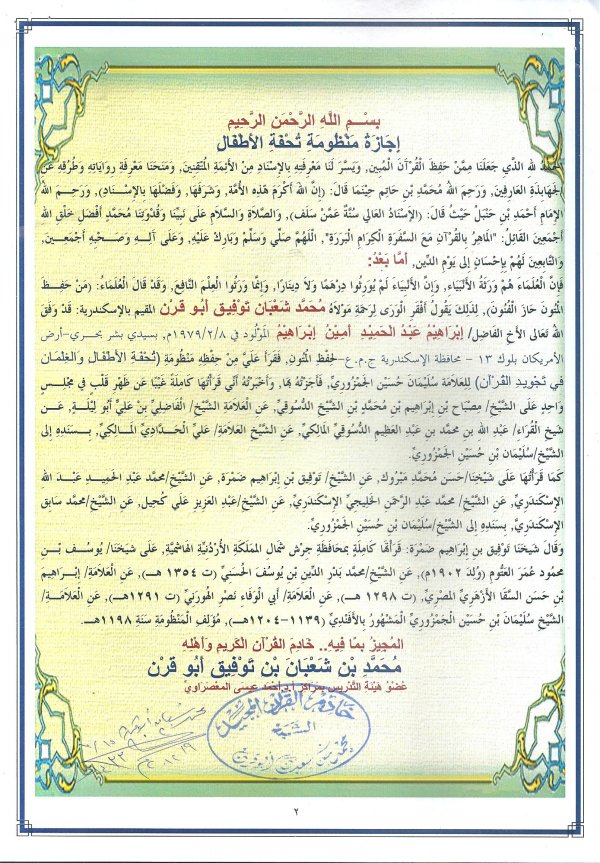 بِسْمِ اللَّهِ الرَّحْمَنِ الرَّحِيمِ
إِجَازَةُ مَنْظُومَةِ تُحْفَةِ الأَطْفَالِ
الحَمْدُ لله الَّذي جَعَلَنَا مِمَّنْ حَفِظَ الْقُرْآنَ الْمُبِين, وَيَسَّرَ لَنَا مَعْرِفَتِهِ بِالإِسْنَادِ مِنَ الأَئِمَةِ المُتْقِنِينَ, وَمَنَحَنَا مَعْرِفَةَ رِوَايَاتِهِ وَطُرُقِهِ عَنِ
الجَهَابِذَةِ العَارِفِينَ, وَرَحِمَ اللهُ مُحَمَّدِ بْنِ حَاتِمٍ حِيْنَمَا قَالَ: (إِنَّ اللهَ أَكْرَمَ هَذِهِ الأُمَّة, وَشَرَفَهَا, وَفَضَّلَهَا بِالإِسْنَادِ), وَرَحِمَ اللهُ
الإِمَامَ أَحْمَدِ بْنِ حَنْبَل حَيْثُ قَالَ: (الإِسْنَادُ العَالِي سُنَّةٌ عَمَّنْ سَلَف), وَالصَّلَاةُ وَالسَّلَامُ عَلَى نَبِيِّنَا وَقُدْوَتِنَا مُحَمَّدٍ أَفْضَلِ خَلْقِ اللهِ
أَجْمَعِينَ القَائِلُ: "المَاهِرُ بِالقُرْآنِ مَعَ السَّفَرَةِ الْكِرَامِ الْبَرَرَةِ", اللَّهُمَّ صَلِّي وَسَلِّمْ وَبَارِكْ عَلَيْهِ, وَعَلَى آلِهِ وَصَحْبِهِ أَجْمَعِينَ,
وَالتَّابِعِينَ لَهُمْ بِإِحْسَانٍ إِلَى يَوْمِ الدِّينِ, أَمَّا بَعْدُ:
فَإِنَّ الْعُلَمَاءَ هُمْ وَرَثَةُ الأَنْبِيَاءِ, وَإِنَّ الأَنْبِيَاءَ لَمْ يُوَرِثُوا دِرْهَمًا وَلَا دِينَارًا, وَإِنَّمَا وَرَثُوا الْعِلْمَ النَّافِعَ, وَقَدْ قَالَ الْعُلَمَاءُ: (مَنْ حَفِظَ
المُتُونَ حَازَ الفُنُونَ), لِذَلِكَ يَقُولُ أَفْقَرُ الْوَرَى لِرَحْمَةِ مَوْلَاهُ مُحَمَّد شَعْبَان تَوْفِيْق أَبُو قَرْن المقيم بالإسكندرية: قَدْ وَفَقَ
اللهُ تَعَالَى الأَخِ الفَاضِل/ إِبْرَاهِيْمُ عَبْدُ الحَمِيْدِ أَمِيْنُ إِبْرَاهِيْمُ المَوْلُود في ١٩٧٩/٢/٨م, بسيدي بشر بحري-أرض
الأمريكان بلوك ١٣ - محافظة الإسكندرية ج.م.ع-لحِفظِ المتونِ, فَقَرَأَ عَلَيَّ مِنْ حِفظِهِ مَنظُومَةِ (تُحْفَةِ الأَطْفَالِ وَالغِلْمَانِ
فِي تَجْوِيدِ القُرْآنِ) لِلعَلَامَةِ سُلَيْمَان حُسَيْنِ الجَمْزُورِيِّ, فَأَجَزْتُهُ بِهَا, وَأَخبَرْتُهُ أَنِّي قَرَأْتُهَا كَامِلَةً غَيْبًا عَنْ ظَهْرِ قَلْبٍ في مَجْلِسٍ
وَاحِدٍ عَلَى الشَّيْخِ/ مِصْبَاح بن إِبْرَاهِيمَ بْنِ مُحَمَّدِ بْنِ الشَّيْخِ الدُّسُوقِي, عَنِ العَلَامَةِ الشَّيْخِ/ الفَاضِلِيِّ بْنْ عَلِيٍّ أَبُو لَيْلَةٍ, عَنِ
شَيْخِ القُرَاءِ/ عَبْدِ الله بن محمد بن عَبْدِ العَظِيمِ الدُّسُوقِي المَالِكِيِّ, عَنِ الشَّيْخِ العَلَامَةِ/ عَلِيِّ الحَدَّادِيِّ المَالِكِيِّ, بِسَنَدِهِ إلى
الشَّيْخِ/ سُلَيْمَانَ بْنِ حُسَيْنِ الجَمْزُورِيِّ.
كَمَا قَرَأْتُهَا عَلَى شَيْخِنَا/حَسَن مُحَمَّد مَبْرُوك, عَنِ الشَّيْخِ/ تَوْفِيقِ بن إِبْرَاهِيمَ ضَمْرَة, عَنِ الشَّيْخِ/محمد عَبدِ الحَمِيدِ عبد الله
الإِسْكَنْدَرِيِّ, عَنِ الشَّيْخِ/ محمد عَبْدِ الرَّحْمَنِ الخَلِيجِيِّ الإِسْكَنْدَرِيِّ, عَنِ الشَّيْخِ/عَبْدِ العَزِيزِ عَلِي كُحَيل, عَنِ الشَّيْخِ/محمد سابق
الإِسْكَنْدَرِيِّ, بِسَنَدِهِ إلى الشَّيْخِ/سُلَيْمَانَ بْنِ حُسَيْنِ الجَمْزُورِيِّ.
وَقَالَ شَيخُنَا تَوْفِيقِ بن إِبْرَاهِيمَ ضَمْرَة: قَرَأتُهَا كَامِلَةً بِمُحَافَظَةِ جَرَش شَمَالِ المَمْلَكَةِ الأُرْدُنِيَّةِ الهَاشِمِيَّةِ, عَلَى شَيْخِنَا/ يُوسُفَ بْنِ
مَحمُود عُمَرَ العتُوم (وُلِدَ ١٩٠٢م), عَنِ الشَّيْخِ/محمد بَدْرِ الدِّينِ بْنِ يُوسُف الحَسَنِي (ت ١٣٥٤ هـ), عَنِ العَلَامَةِ/ إِبْرَاهِيمَ
بن حَسَن السَّقَا الأَزْهَرِيِّ المصري, (ت ١٢٩٨ هـ), عَنِ العَلَامَةِ/ أَبِي الوَفَاءِ نَصْرِ الهُورِينِيِّ (ت ١٢٩١هـ), عَنِ العَلَامَةِ/
الشَّيْخِ سُلَيْمَانَ بْنِ حُسَيْنِ الجَمْزُورِيِّ المَشْهُورِ بِالأَفَنْدِيِّ (١١٣٩-١٢٠٤هـ), مُؤَلِفِ المَنْظُومَةِ سَنَةَ ١١٩٨هـ.
المُجِيْزُ بِمَا فِيْهِ.. خَادِمِ القُرْآنِ الكَرِيمِ وَأَهْلِهِ
مُحَمَّدِ بْنِ شَعْبَانَ بْنِ تَوْفِيقِ أَبُو قَرْن
عُضْوُ هَيْئَةِ التَّدْرِيسِ بِمَرَاكِزِ أ.د.أحمد عيسى المعصراويّ
خادم القرآن المجيد
الشيخ
محمد بن شعبان أبو قرن
٢